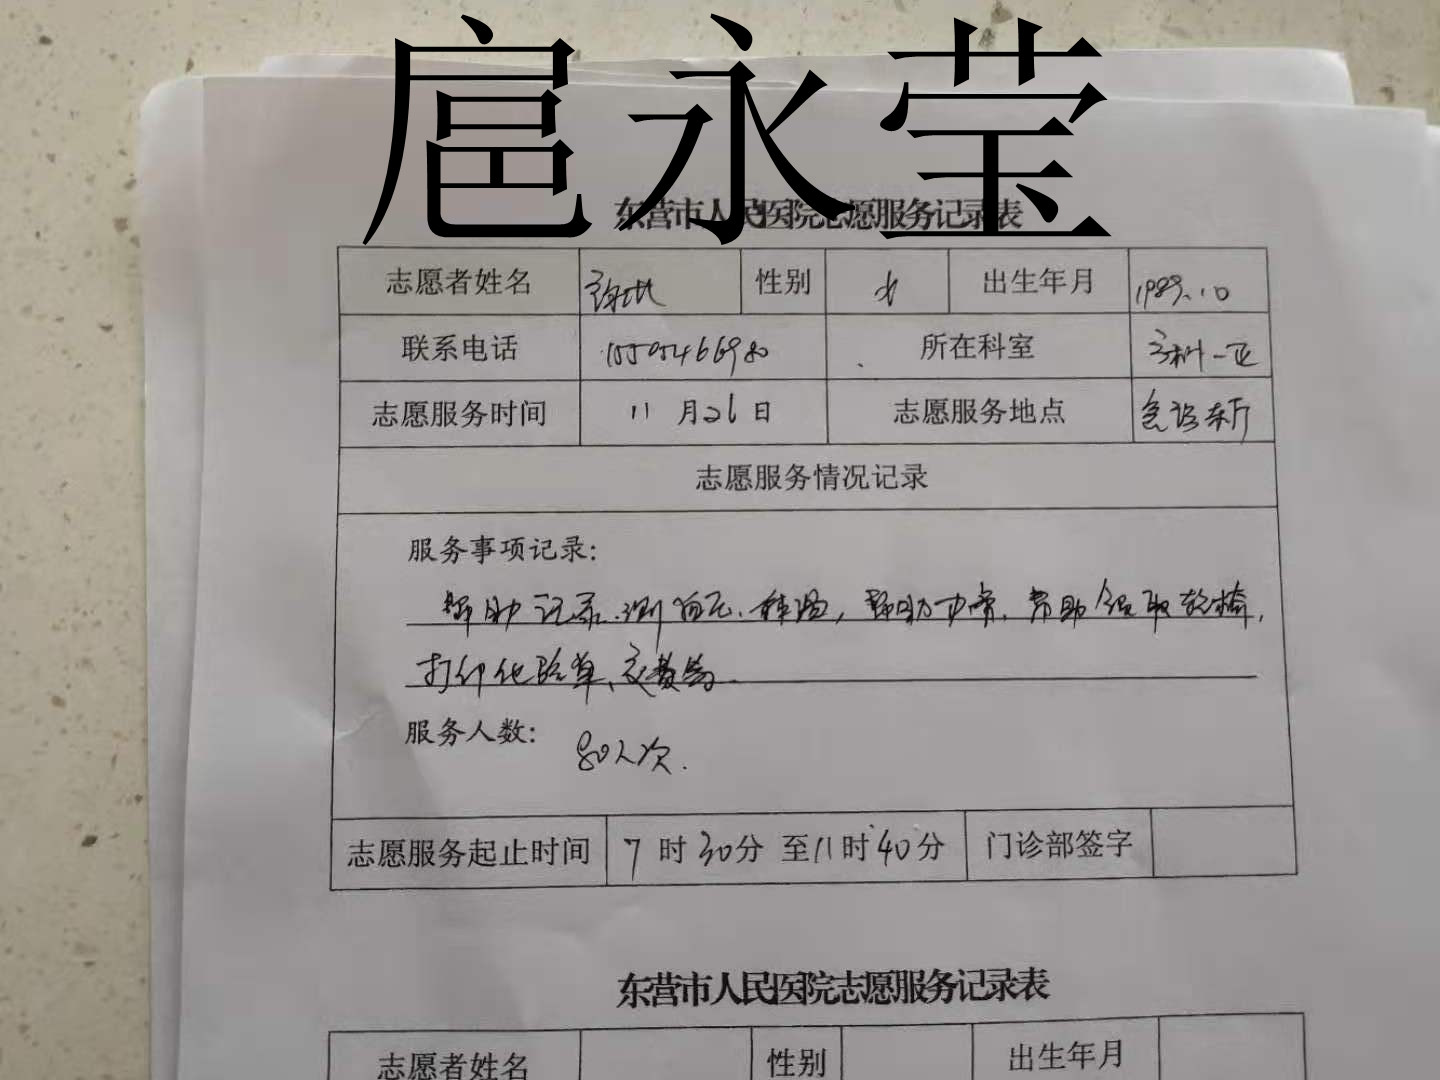 扈永莹
东营市人民医院志愿服务记录表
志愿者姓名 性别 女 出生年月 1989.10
联系电话 所在科室
志愿服务时间 11月26日 志愿服务地点
志愿服务情况记录
服务事项记录:
帮助记录.测血压.体温,帮助 帮助领取轮椅,
打印化验单、交费等.
服务人数: 80人次.
志愿服务起止时间 7时30分至11时40分 门诊部签字
东营市人民医院志愿服务记录表
志愿者姓名 性别 出生年月